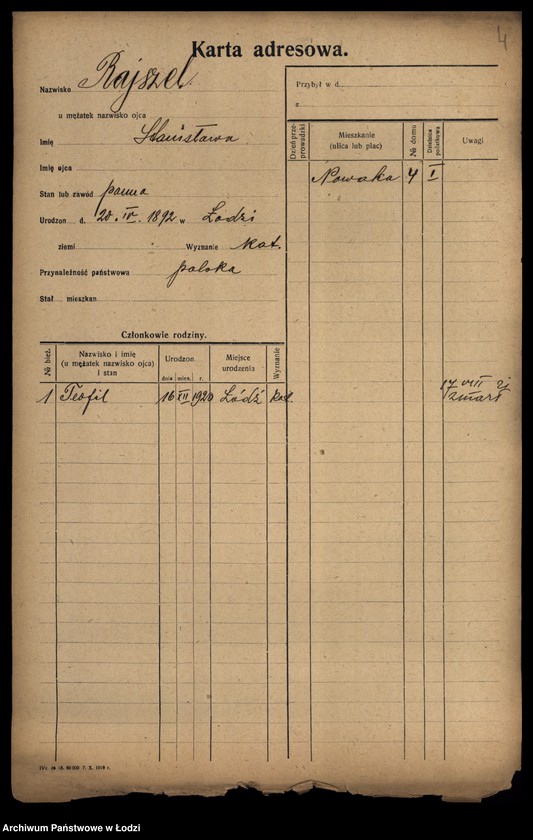 4
Karta adresowa.
Nazwisko Rajszel
u mężatek nazwisko ojca
Imię Stanisława
Imię ojca
Stan lub zawód panna
Urodzon d. 20. IV. 1892 w Łodzi
ziemi Wyznanie kat.
Przynależność państwowa polska
Stał. mieszkan
Przybył w d.
z
Dzień przeprowadzki
Mieszkanie
(ulica lub plac)
№ domu
Dzielnica
podatkowa
Uwagi
Nowaka 4 I
Członkowie rodziny.
№ bież.
Nazwisko i imię
(u mężatek nazwisko ojca)
i stan
Urodzon
dnia mies. r.
Miejsce
urodzenia
Wyznanie
1 Teofil 16 XII 1920 Łódź kat.
17 VIII 21
zmarł
7. X. 1919 r.
Archiwum Państwowe w Łodzi